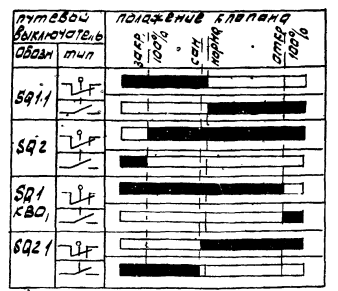 путевой
выключатель
положение клапана
Обозн тип
закр. 100%
сам
норма
откр 100%
SQ1.1
SQ2
SQ1
КВО1
SQ2.1